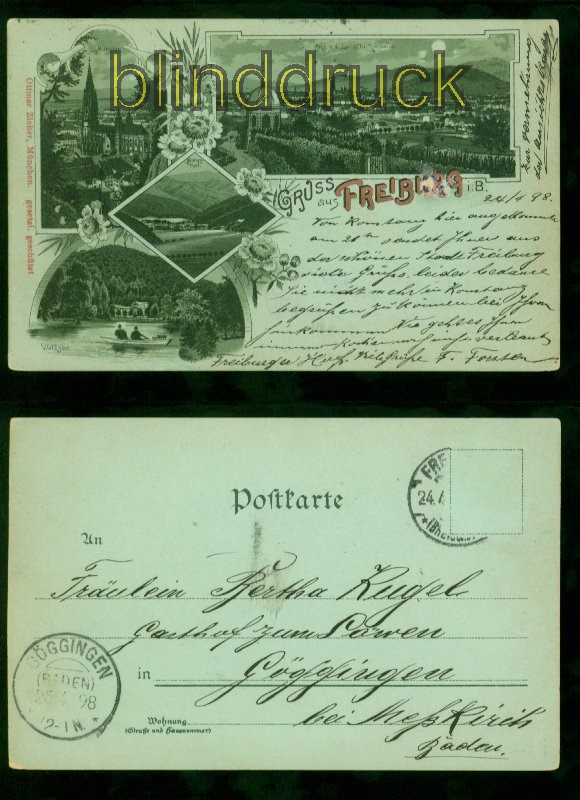 blinddruck
Ottmar Zieher, München. gesetzl. geschützt
GRUSS aus FREIBURG i. B.
24/4 98.
Von Konstanz hier angekommen
am 20ten sendet Ihnen aus
der schönen Stadt Freiburg
viele Grüße, leider bedaure
Sie nicht mehr in Konstanz
begrüßen zu können bei Ihrem
Wie geht es Ihnen
immer
Freiburger Hof.
Waldsee
Postkarte
FRE
24.4
(BREISGAU)
An
Fräulein Bertha Kugel
Gasthof zum Löwen
in Göggingen
bei Meßkirch
Baden.
Wohnung
(Straße und Hausnummer)
GÖGGINGEN
(BADEN)
98
12-1N